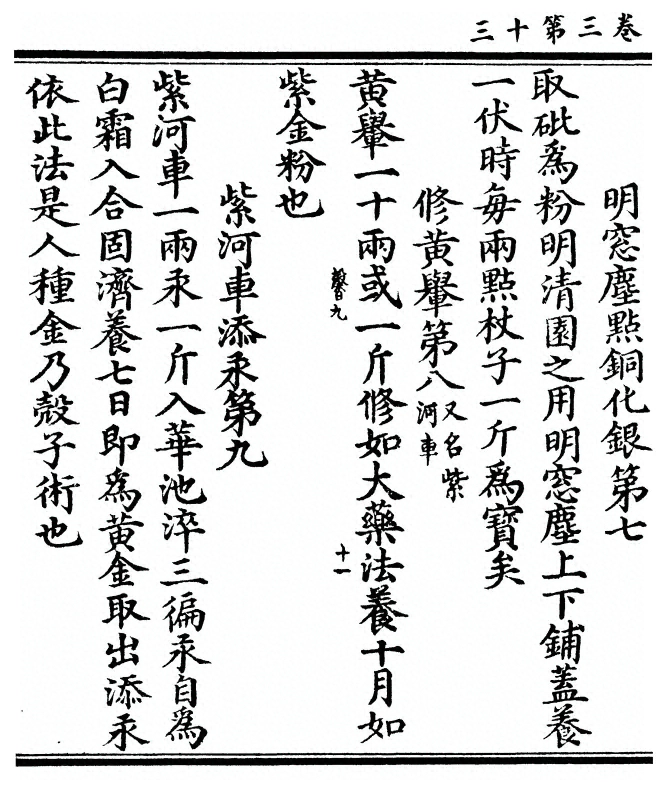 三十第三卷
明窓塵點銅化銀第七
取砒爲粉明清園之用明窓塵上下鋪蓋養
一伏時每兩點杖子一斤爲寶矣
修黃轝第八又名紫河車
黃轝一十兩或一斤修如大藥法養十月如
紫金粉也
紫河車添汞第九
紫河車一兩汞一斤入華池淬三徧汞自爲
白霜入合固濟養七日即爲黃金取出添汞
依此法是人種金乃殼子術也
馨九
十一